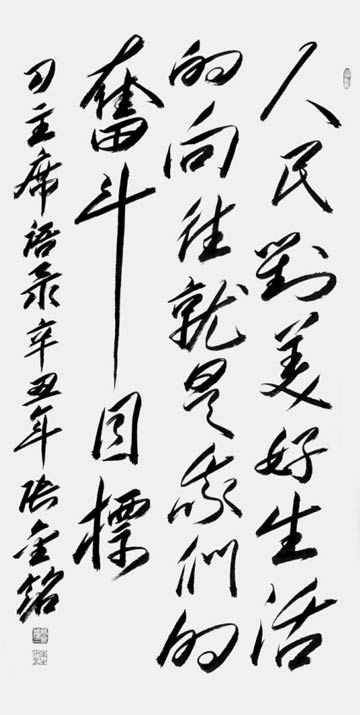 人民對美好生活
的向往就是我們的
奮斗目標
习主席语录辛丑年张金铭